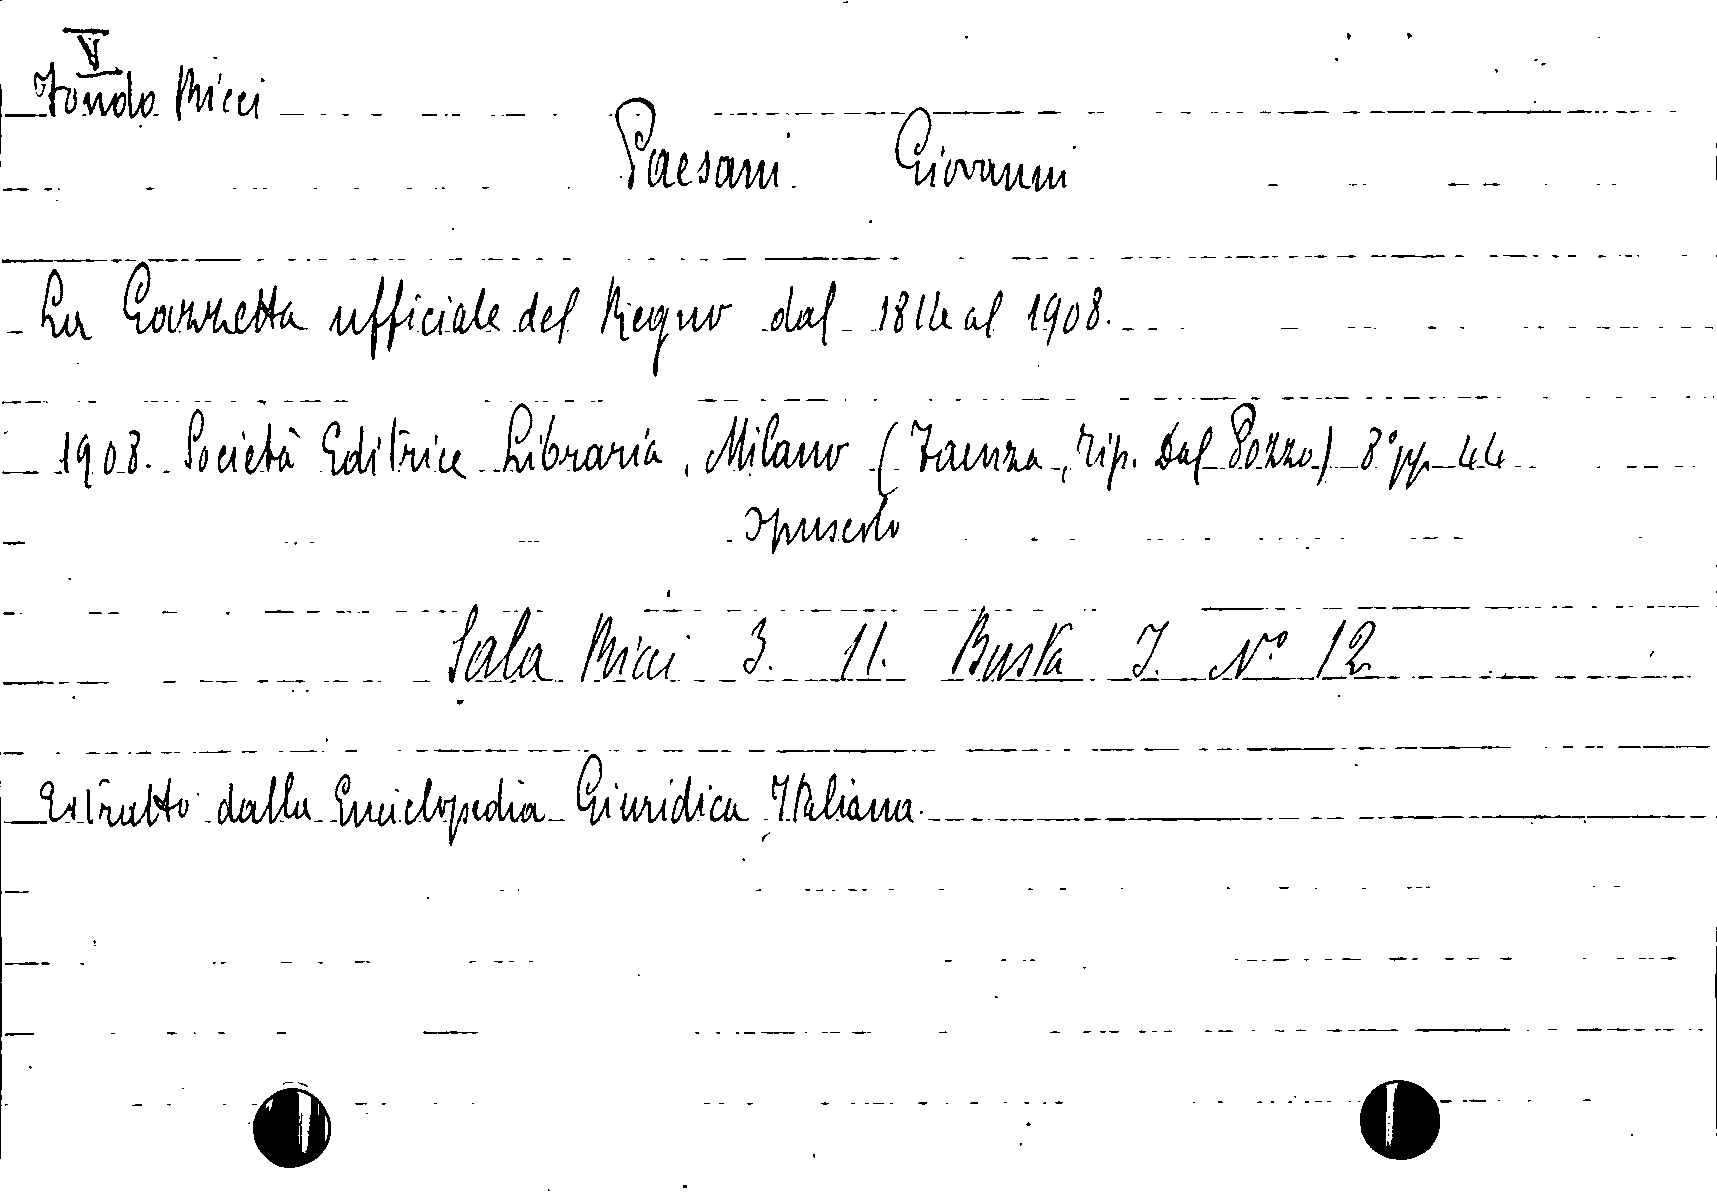 V
Fondo Ricci
Paesani Giovanni
La Gazzetta ufficiale del Regno dal 1814 al 1908.
1908. Società Editrice Libraria, Milano (Faenza, Tip. Dal Pozzo) 8° pp. 44
opuscolo
Sala Ricci 3. 11. Busta I. N° 12
Estratto dalla Enciclopedia Giuridica Italiana.